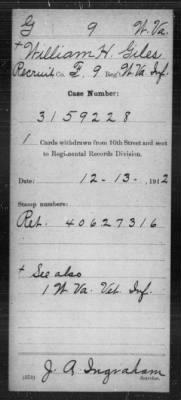 G 9 W. Va.
+ William H. Giles
Recruit Co. F, 9 Reg't W. Va. Inf.
Case Number:
3159228
1 Cards withdrawn from 10th Street and sent
to Regimental Records Division.
Date: 12-13-, 1912
Stamp numbers:
Ret. 40627316
+ See also
1 W. Va. Vet. Inf.
J. A. Ingraham